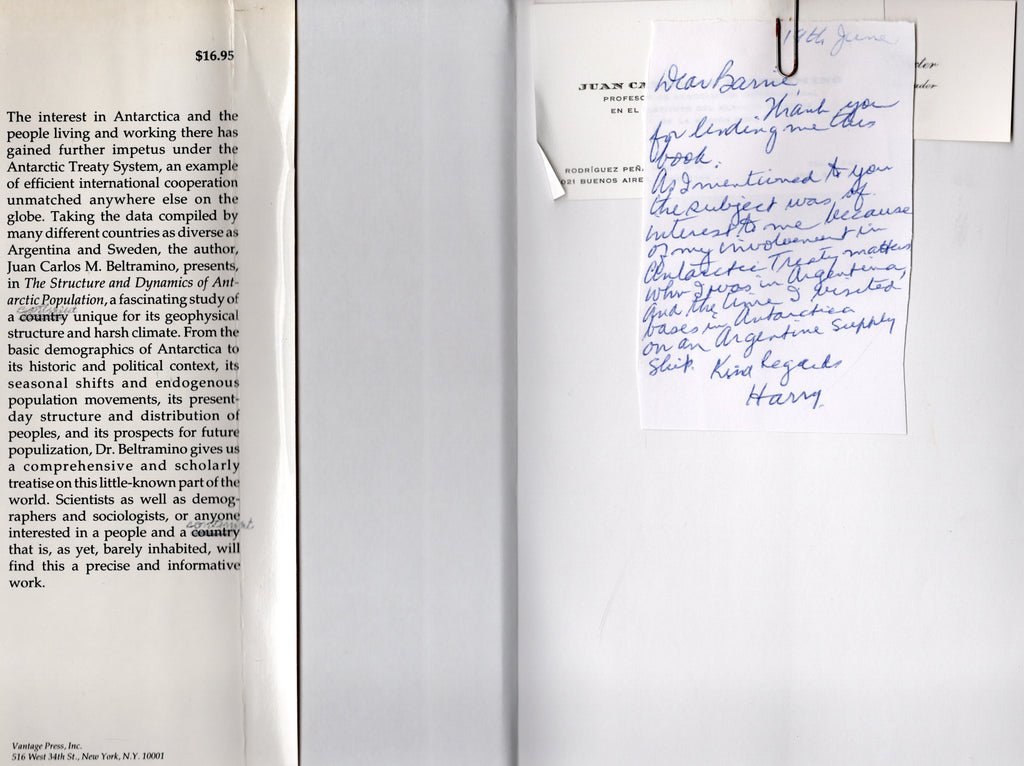 $16.95
The interest in Antarctica and the
people living and working there has
gained further impetus under the
Antarctic Treaty System, an example
of efficient international cooperation
unmatched anywhere else on the
globe. Taking the data compiled by
many different countries as diverse as
Argentina and Sweden, the author,
Juan Carlos M. Beltramino, presents,
in The Structure and Dynamics of Ant-
arctic Population, a fascinating study of
continent
a country unique for its geophysical
structure and harsh climate. From the
basic demographics of Antarctica to
its historic and political context, its
seasonal shifts and endogenous
population movements, its present-
day structure and distribution of
peoples, and its prospects for future
populization, Dr. Beltramino gives us
a comprehensive and scholarly
treatise on this little-known part of the
world. Scientists as well as demog-
raphers and sociologists, or anyone
continent
interested in a people and a country
that is, as yet, barely inhabited, will
find this a precise and informative
work.
Vantage Press, Inc.
516 West 34th St., New York, N.Y. 10001
JUAN CA
PROFESO
EN EL
RODRÍGUEZ PEÑ
021 BUENOS AIRE
19th June
Dear Barrie
Thank you
for lending me this
book.
As I mentioned to you
the subject was of
interest to me because
of my involvement in
Antarctic Treaty matters
when I was in Argentina,
and the time I visited
bases in Antarctica
on an Argentine Supply
Ship. Kind Regards
Harry.